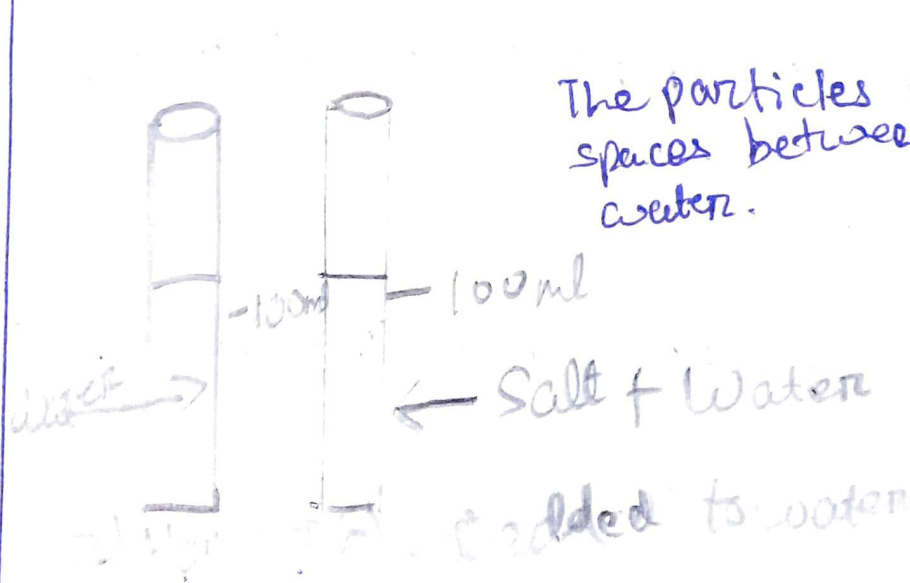 The particles
spaces between
water.
-100ml
- 100ml
water
Salt + Water
added to water